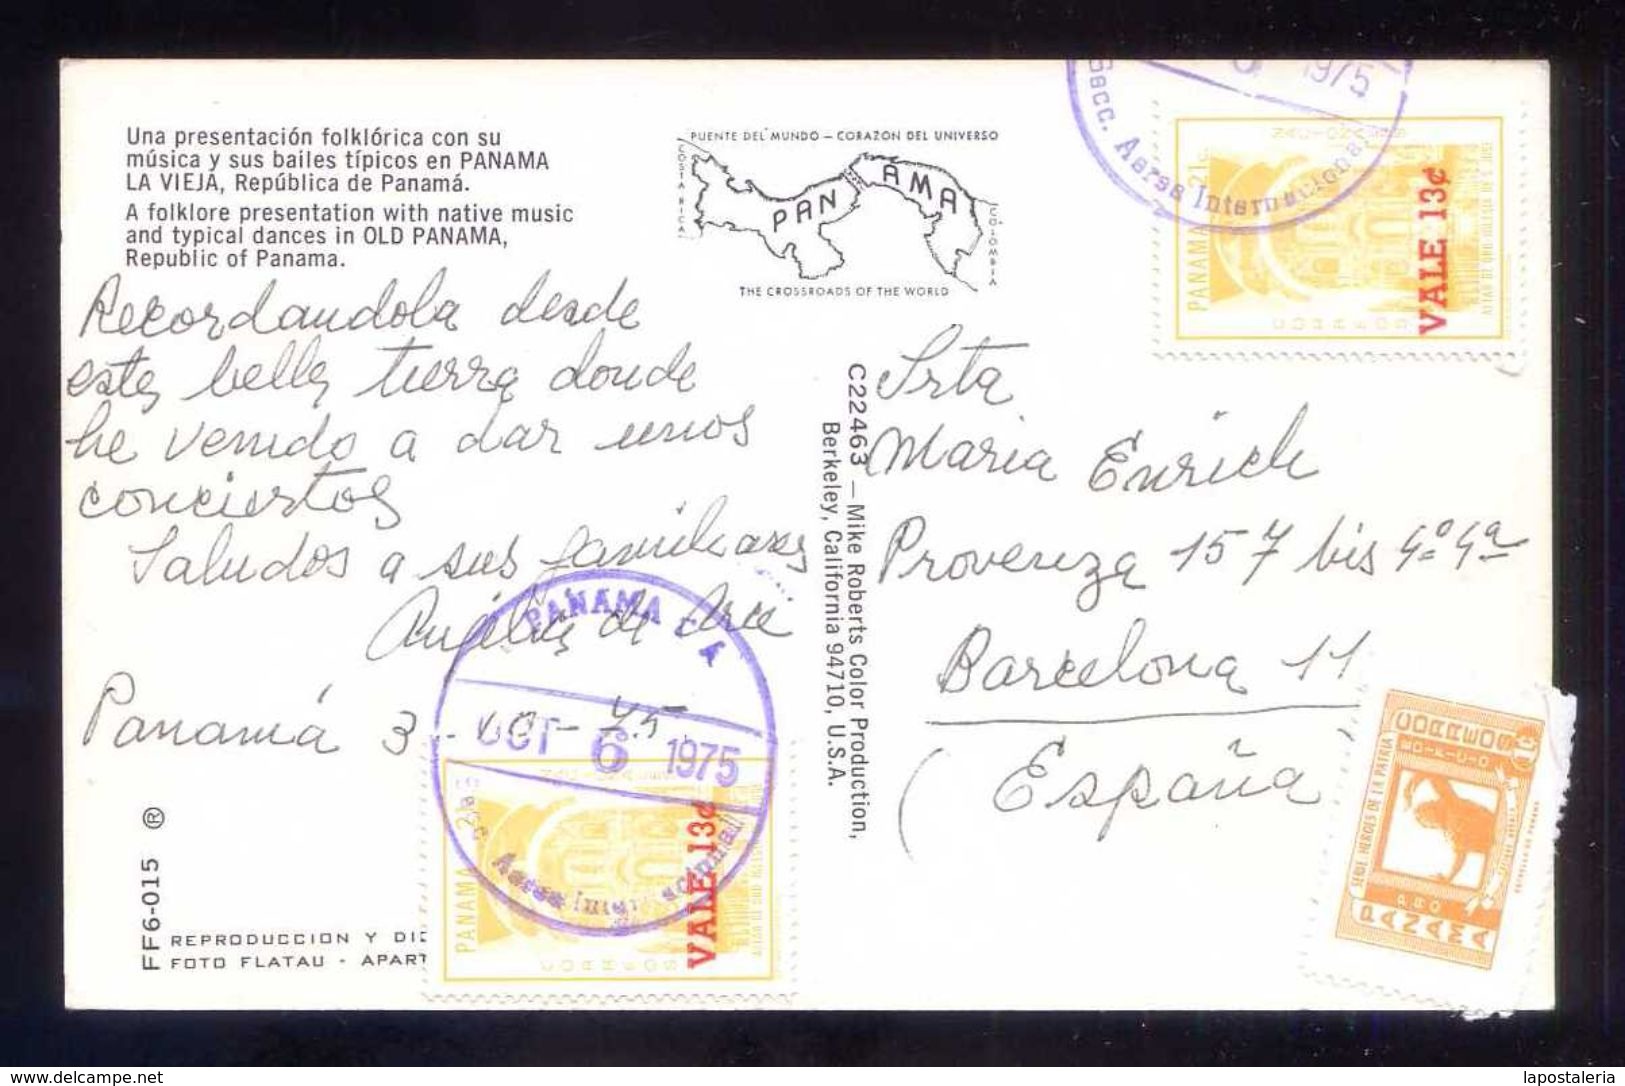 Una presentación folklórica con su
música y sus bailes típicos en PANAMA
LA VIEJA, República de Panamá.
A folklore presentation with native music
and typical dances in OLD PANAMA,
Republic of Panama.
PUENTE DEL MUNDO – CORAZON DEL UNIVERSO
COSTA RICA
PANAMA
COLOMBIA
THE CROSSROADS OF THE WORLD
Recordandola desde
esta bella tierra donde
he venido a dar unos
conciertos
Saludos a sus familiares
de
Panamá 3 - 10 - 75
FF6-015 ®
REPRODUCCION Y DI
FOTO FLATAU - APART
C22463 – Mike Roberts Color Production,
Berkeley, California 94710, U.S.A.
Srta
Maria Enrich
Provenza 157 bis 4º 4ª
Barcelona 11
(España)
1975
Secc. Aerea Internacional
PANAMA 21c.
CORREOS
VALE 13¢
PANAMA
OCT 6 1975
Secc. Aerea Internacional
PANAMA 21c.
CORREOS
VALE 13¢
CORREOS
SERIE HEROES DE LA PATRIA
PRO
PANAMA
delcampe.net
lapostaleria